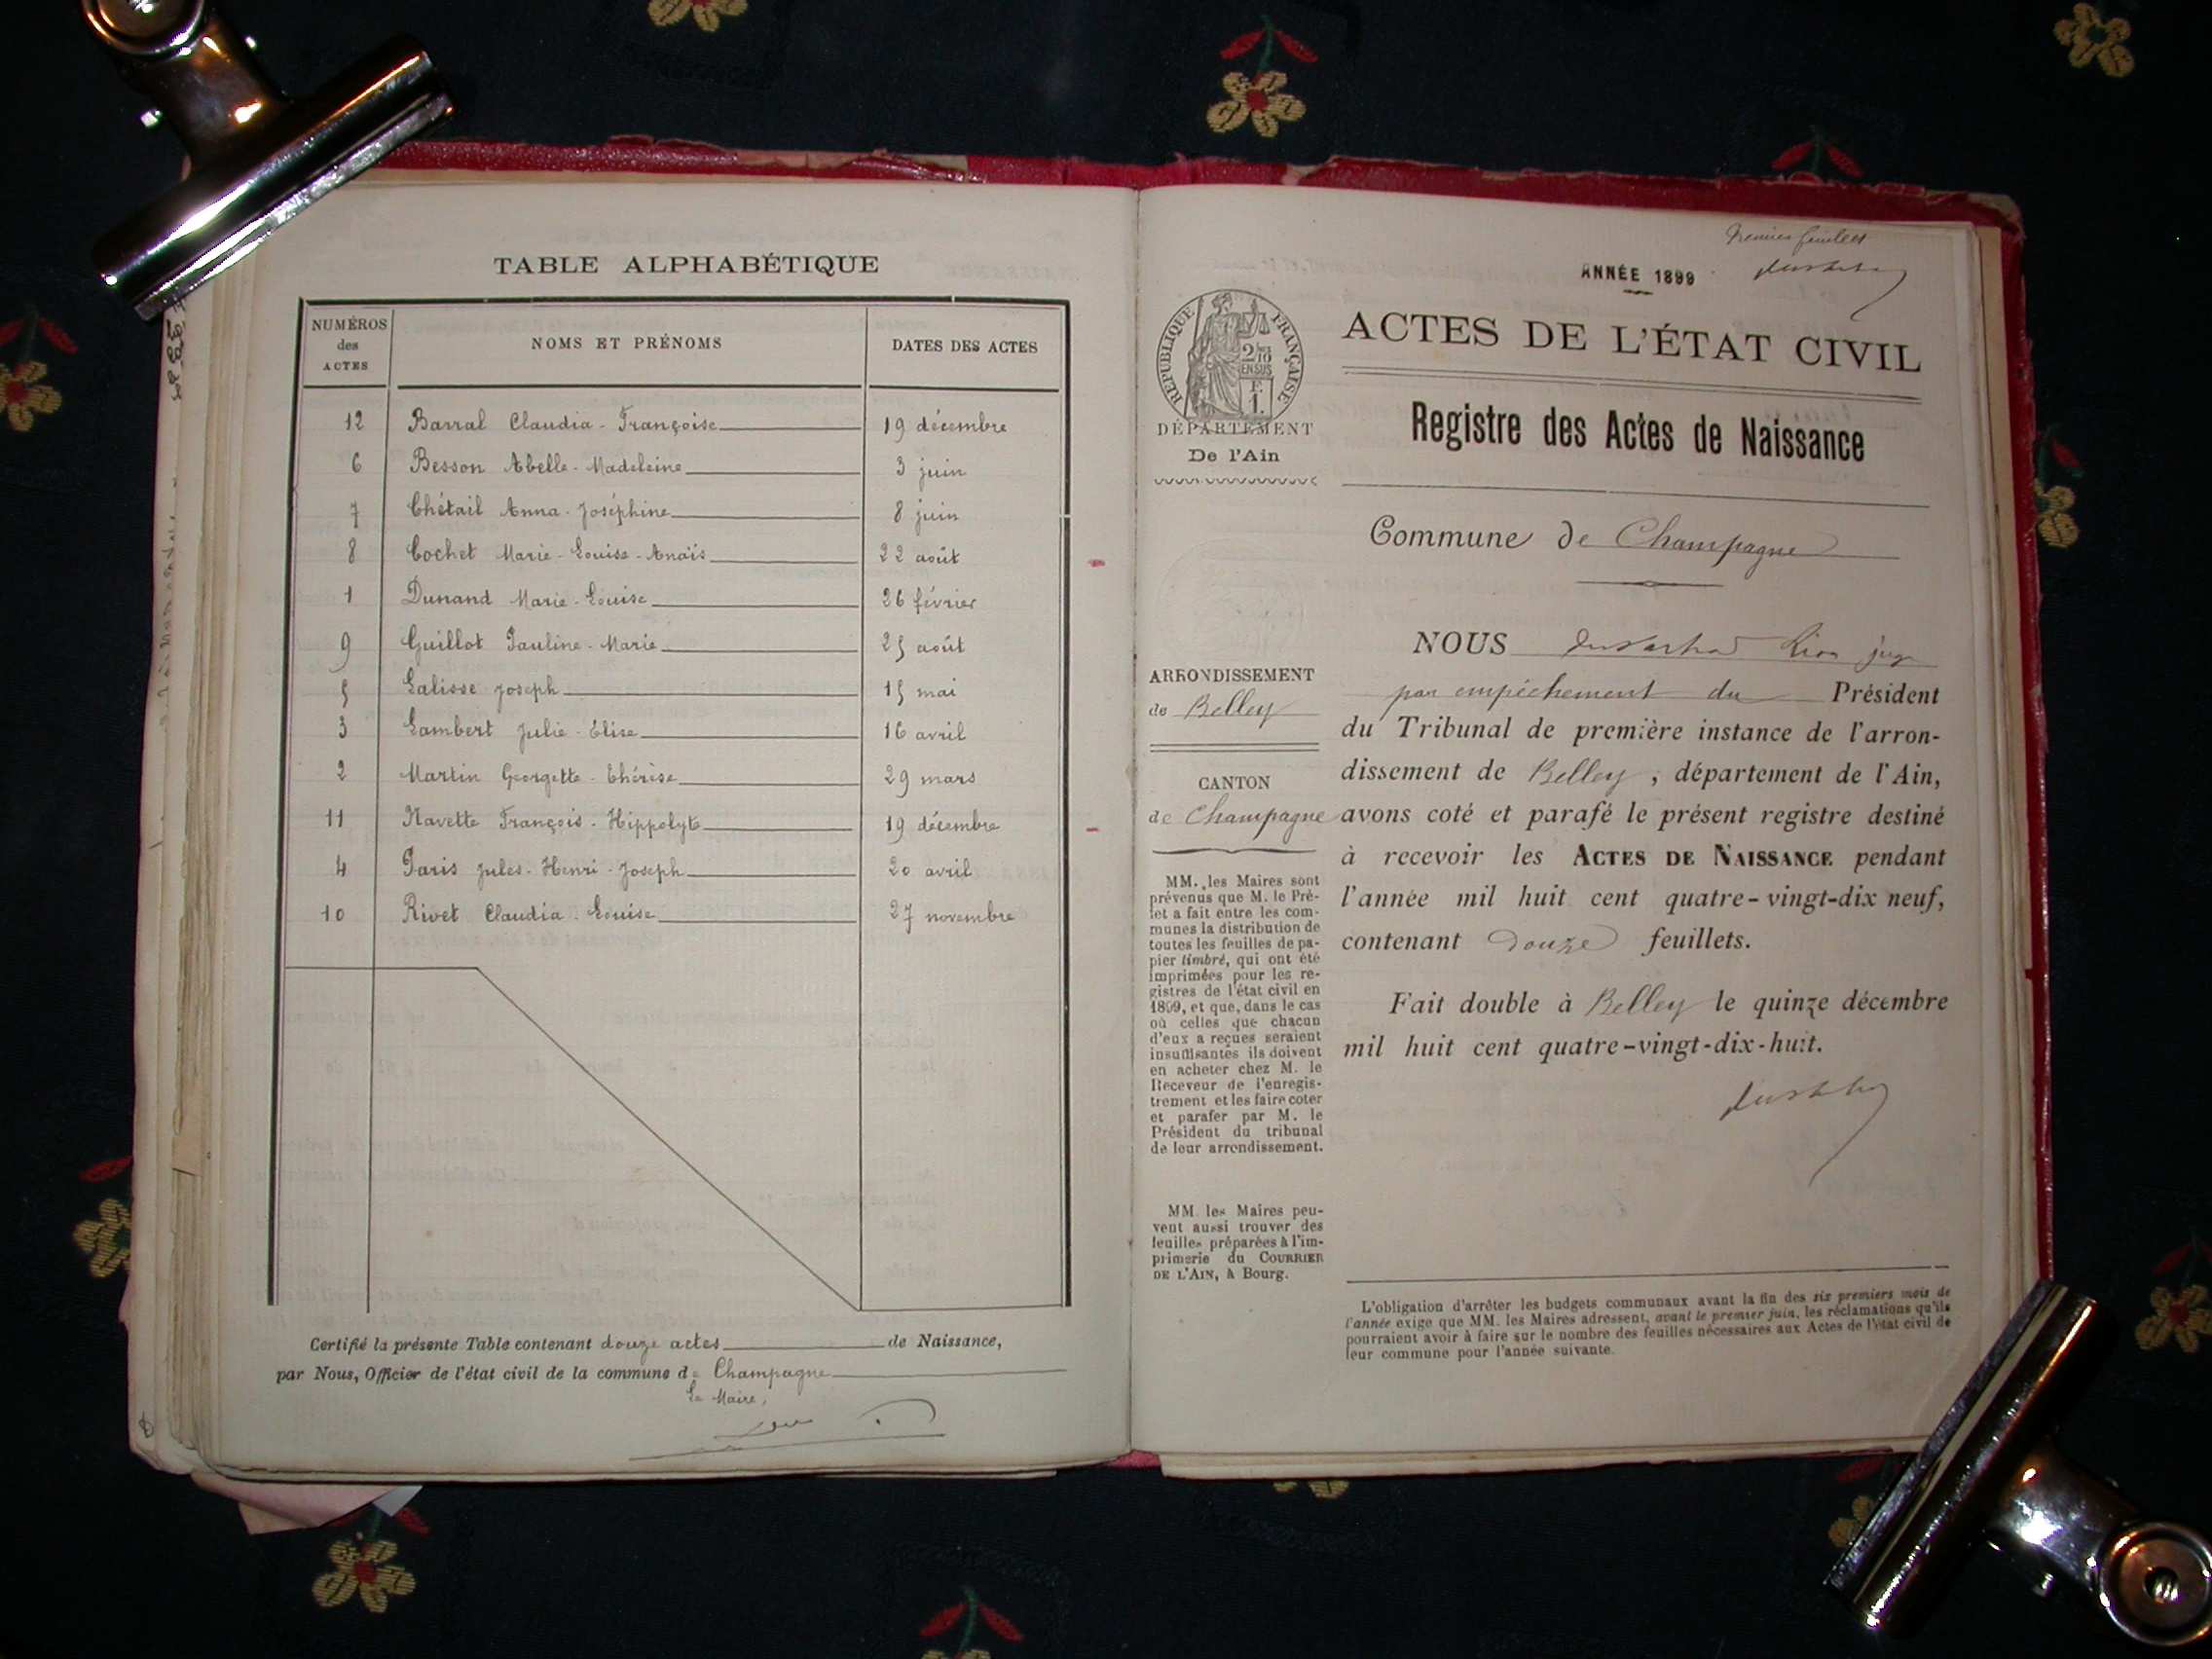 TABLE ALPHABÉTIQUE
NUMÉROS des ACTES
NOMS ET PRÉNOMS
DATES DES ACTES
12 Barral Claudia-Françoise 19 décembre
6 Besson Abelle-Madeleine 3 juin
7 Chétail Anna-Joséphine 8 juin
8 Cochet Marie-Louise-Anaïs 22 août
1 Dunand Marie-Louise 26 février
9 Guillot Pauline-Marie 25 août
5 Lalisse Joseph 15 mai
3 Lambert Julie-Élise 16 avril
2 Martin Georgette-Thérèse 29 mars
11 Navette François-Hippolyte 19 décembre
4 Paris Jules-Henri-Joseph 20 avril
10 Rivet Claudia-Louise 27 novembre
Certifié la présente Table contenant douze actes de Naissance,
par Nous, Officier de l'état civil de la commune de Champagne
Le Maire,
Premier feuillet
ANNÉE 1899
RÉPUBLIQUE FRANÇAISE
2/10 EN SUS
F. 1.
DÉPARTEMENT
De l'Ain
ACTES DE L'ÉTAT CIVIL
Registre des Actes de Naissance
Commune de Champagne
ARRONDISSEMENT
de Belley
CANTON
de Champagne
MM. les Maires sont
prévenus que M. le Pré-
fet a fait entre les com-
munes la distribution de
toutes les feuilles de pa-
pier timbré, qui ont été
imprimées pour les re-
gistres de l'état civil en
1899, et que, dans le cas
où celles que chacun
d'eux a reçues seraient
insuffisantes ils doivent
en acheter chez M. le
Receveur de l'enregis-
trement et les faire coter
et parafer par M. le
Président du tribunal
de leur arrondissement.
MM. les Maires peu-
vent aussi trouver des
feuilles préparées à l'im-
primerie du COURRIER
DE L'AIN, à Bourg.
NOUS juge
par empêchement du Président
du Tribunal de première instance de l'arron-
dissement de Belley, département de l'Ain,
avons coté et parafé le présent registre destiné
à recevoir les ACTES DE NAISSANCE pendant
l'année mil huit cent quatre-vingt-dix neuf,
contenant douze feuillets.
Fait double à Belley le quinze décembre
mil huit cent quatre-vingt-dix-huit.
L'obligation d'arrêter les budgets communaux avant la fin des six premiers mois de
l'année exige que MM. les Maires adressent, avant le premier juin, les réclamations qu'ils
pourraient avoir à faire sur le nombre des feuilles nécessaires aux Actes de l'état civil de
leur commune pour l'année suivante.